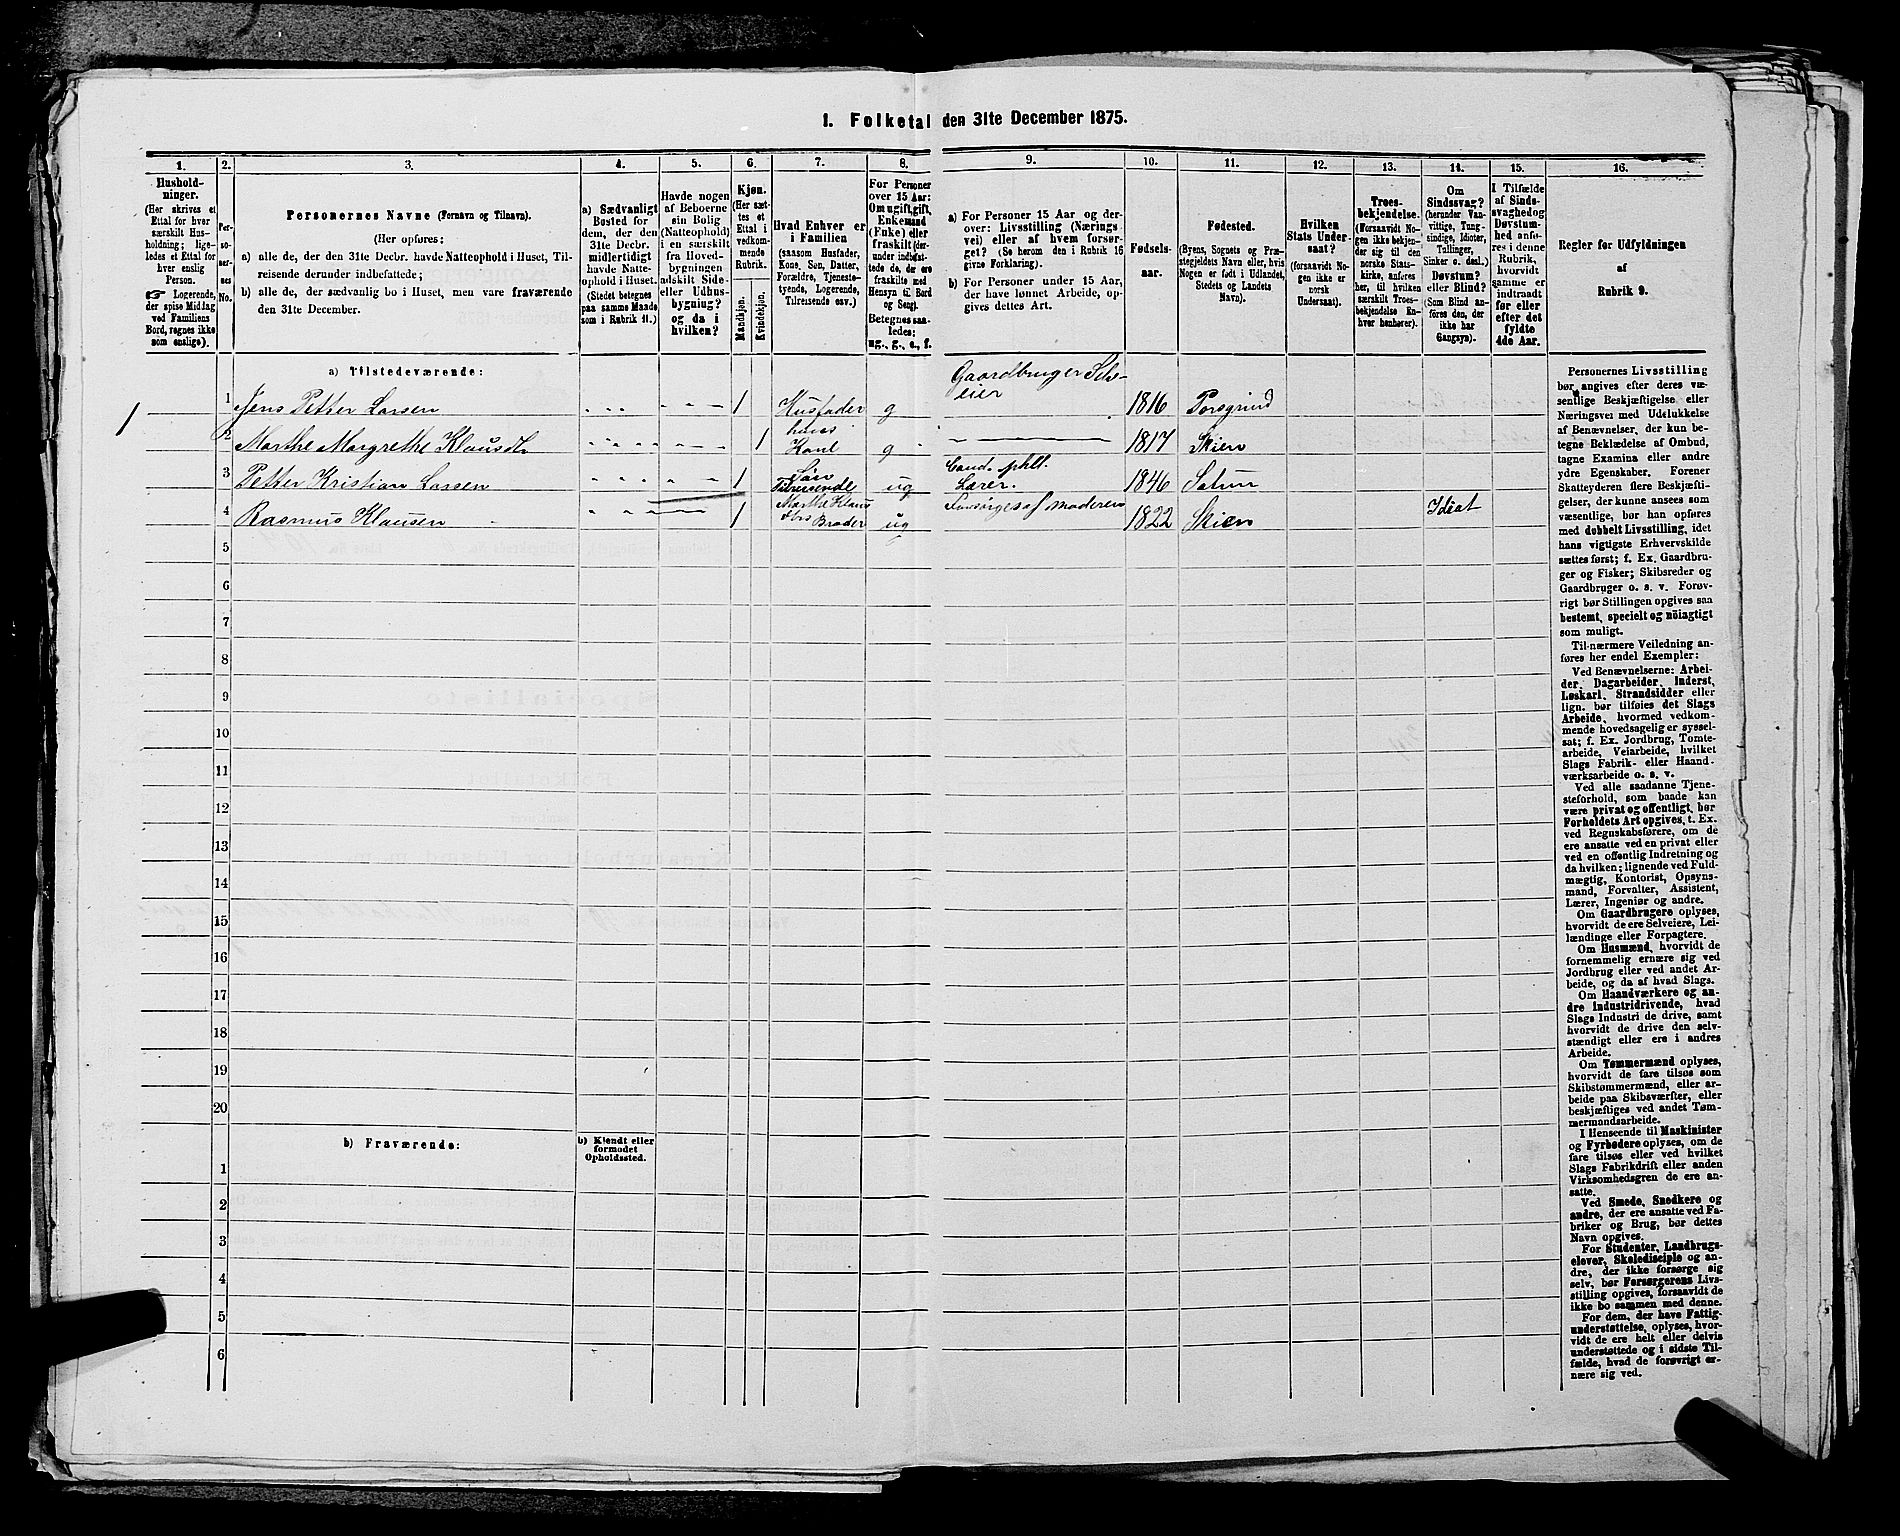 1. Folketal den 31te December 1875.
1.
2.
3.
4.
5.
6.
7.
8.
9.
10.
11.
12.
13.
14.
15.
16.
Hushold-
ninger.
(Her skrives et
Ettal for hver
særskilt Hus-
holdning; lige-
ledes et Ettal
for hver enslig
Person.
☞ Logerende,
der spise Middag
ved Familiens
Bord, regnes ikke
som enslige).
Per-
so-
ner-
nes
No.
Personernes Navne (Fornavn og Tilnavn).
(Her opføres:
a) alle de, der den 31te Decbr. havde Natteophold i Huset, Til-
reisende derunder indbefattede;
b) alle de, der sædvanlig bo i Huset, men vare fraværende
den 31te December.
a) Sædvanligt
Bosted for
dem, der den
31te Decbr.
midlertidigt
havde Natte-
ophold i Huset.
(Stedet betegnes
paa samme Maade
som i Rubrik 11.)
Havde nogen
af Beboerne
sin Bolig
(Natteophold)
i en særskilt
fra Hoved-
bygningen
adskilt Side-
eller Udhus-
bygning?
og da i
hvilken?
Kjøn.
(Her sæt-
tes et
Ettal i
vedkom-
mende
Rubrik.
Mandkjøn.
Kvindekjøn.
Hvad Enhver er
i Familien
(saasom Husfader,
Kone, Søn, Datter,
Forældre, Tjeneste-
tyende, Logerende,
Tilreisende osv.)
For Personer
over 15 Aar:
Om ugift, gift,
Enkemand
(Enke) eller
fraskilt (der-
under indbefat-
tede de, der ere
fraskilte med
Hensyn til Bord
og Seng).
Betegnes saa-
ledes:
ug., g., e., f.
a) For Personer 15 Aar og der-
over: Livsstilling (Nærings-
vei) eller af hvem forsør-
get? (Se herom den i Rubrik 16
givne Forklaring).
b) For Personer under 15 Aar,
der have lønnet Arbeide, op-
gives dettes Art.
Fødsels-
aar.
Fødested.
(Byens, Sognets og Præ-
stegjeldets Navn eller, hvis
Nogen er født i Udlandet,
Stedets og Landets
Navn).
Hvilken
Stats Under-
saat?
(forsaavidt No-
gen ikke er
norsk
Undersaat).
Troes-
bekjendelse.
(Forsaavidt No-
gen ikke bekjen-
der sig til den
norske Stats-
kirke, anføres
her, til hvilken
særskilt Troes-
bekjendelse En-
hver henhører).
Om
Sindssvag?
(herunder Van-
vittige, Tung-
sindige, Idioter,
Tullinger,
Sinker o. desl.)
Døvstum?
eller Blind?
(Som Blind an-
føres den, der
ikke har
Gangsyn).
I Tilfælde
af Sinds-
svaghed og
Døvstum-
hed anføres
i denne
Rubrik,
hvorvidt
samme er
indtraadt
før eller
efter det
fyldte
4de Aar.
Regler for Udfyldningen
af
Rubrik 9.
a) Tilstedeværende:
1 1 Jens Petter Larsen 1 Husfader g Gaardbruger Selv-
eier 1816 Porsgrund
2 Marthe Margrethe Klausdt. 1 hans
Kone g 1817 Skien
3 Petter Kristian Larsen 1 Søn
Tilreisende ug Cand. phil.
Lærer. 1846 Solum
4 Rasmus Klausen 1 Marthe Klaus
dtrs Broder ug Forsørges af moderen 1822 Skien Idiot
5
6
7
8
9
10
11
12
13
14
15
16
17
18
19
20
b) Fraværende:
b) Kjendt eller
formodet
Opholdssted.
1
2
3
4
5
6
Personernes Livsstilling
bør angives efter deres væ-
sentlige Beskjæftigelse eller
Næringsvei med Udelukkelse
af Benævnelser, der kun be-
tegne Beklædelse af Ombud,
tagne Examina eller andre
ydre Egenskaber. Forener
Skatteyderen flere Beskjæfti-
gelser, der kunne ansees som
væsentlige, bør han opføres
med dobbelt Livsstilling, idet
hans vigtigste Erhvervskilde
sættes først; f. Ex. Gaardbru-
ger og Fisker; Skibsreder og
Gaardbruger o. s. v. Forøv-
rigt bør Stillingen opgives saa
bestemt, specielt og nøiagtigt
som muligt.
Til nærmere Veiledning an-
føres her endel Exempler:
Ved Benævnelserne: Arbei-
der, Dagarbeider, Inderst,
Løskarl, Strandsidder eller
lign. bør tilføies det Slags
Arbeide, hvormed vedkom-
mende hovedsagelig er syssel-
sat; f. Ex. Jordbrug, Tomte-
arbeide, Veiarbeide, hvilket
Slags Fabrik- eller Haand-
værksarbeide o. s. v.
Ved alle saadanne Tjene-
steforhold, som baade kan
være privat og offentligt, bør
Forholdets Art opgives, t. Ex.
ved Regnskabsførere, om de
ere ansatte ved en privat eller
ved en offentlig Indretning og
da hvilken; lignende ved Fuld-
mægtig, Kontorist, Opsyns-
mand, Forvalter, Assistent,
Lærer, Ingeniør og andre.
Om Gaardbrugere oplyses,
hvorvidt de ere Selveiere, Lei-
lændinge eller Forpagtere.
Om Husmænd, hvorvidt de
fornemmelig ernære sig ved
Jordbrug eller ved andet Ar-
beide, og da af hvad Slags.
Om Haandværkere og an-
dre Industridrivende, hvad
Slags Industri de drive, samt
hvorvidt de drive den selv-
stændigt eller ere i andres
Arbeide.
Om Tømmermænd oplyses,
hvorvidt de fare tilsøs som
Skibstømmermænd, eller ar-
beide paa Skibsværfter, eller
beskjæftiges ved andet Tøm-
mermandsarbeide.
I Henseende til Maskinister
og Fyrbødere oplyses, om de
fare tilsøs eller ved hvilket
Slags Fabrikdrift eller anden
Virksomhedsgren de ere an-
satte.
Ved Smede, Snedkere og
andre, der ere ansatte ved Fa-
briker og Brug, bør dettes
Navn opgives.
For Studenter, Landbrugs-
elever, Skoledisciple og an-
dre, der ikke forsørge sig
selv, bør Forsørgerens Livs-
stilling opgives, forsaavidt de
ikke bo sammen med denne.
For dem, der have Fattig-
understøttelse, oplyses, hvor-
vidt de ere helt eller delvis
understøttede og i sidste Til-
fælde, hvad de forøvrigt er-
nære sig ved.